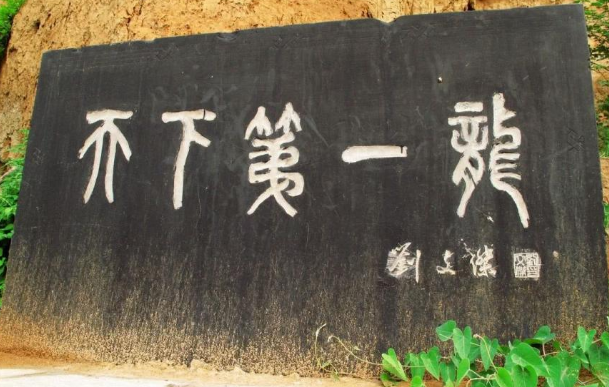 天下第一龍
劉文傑